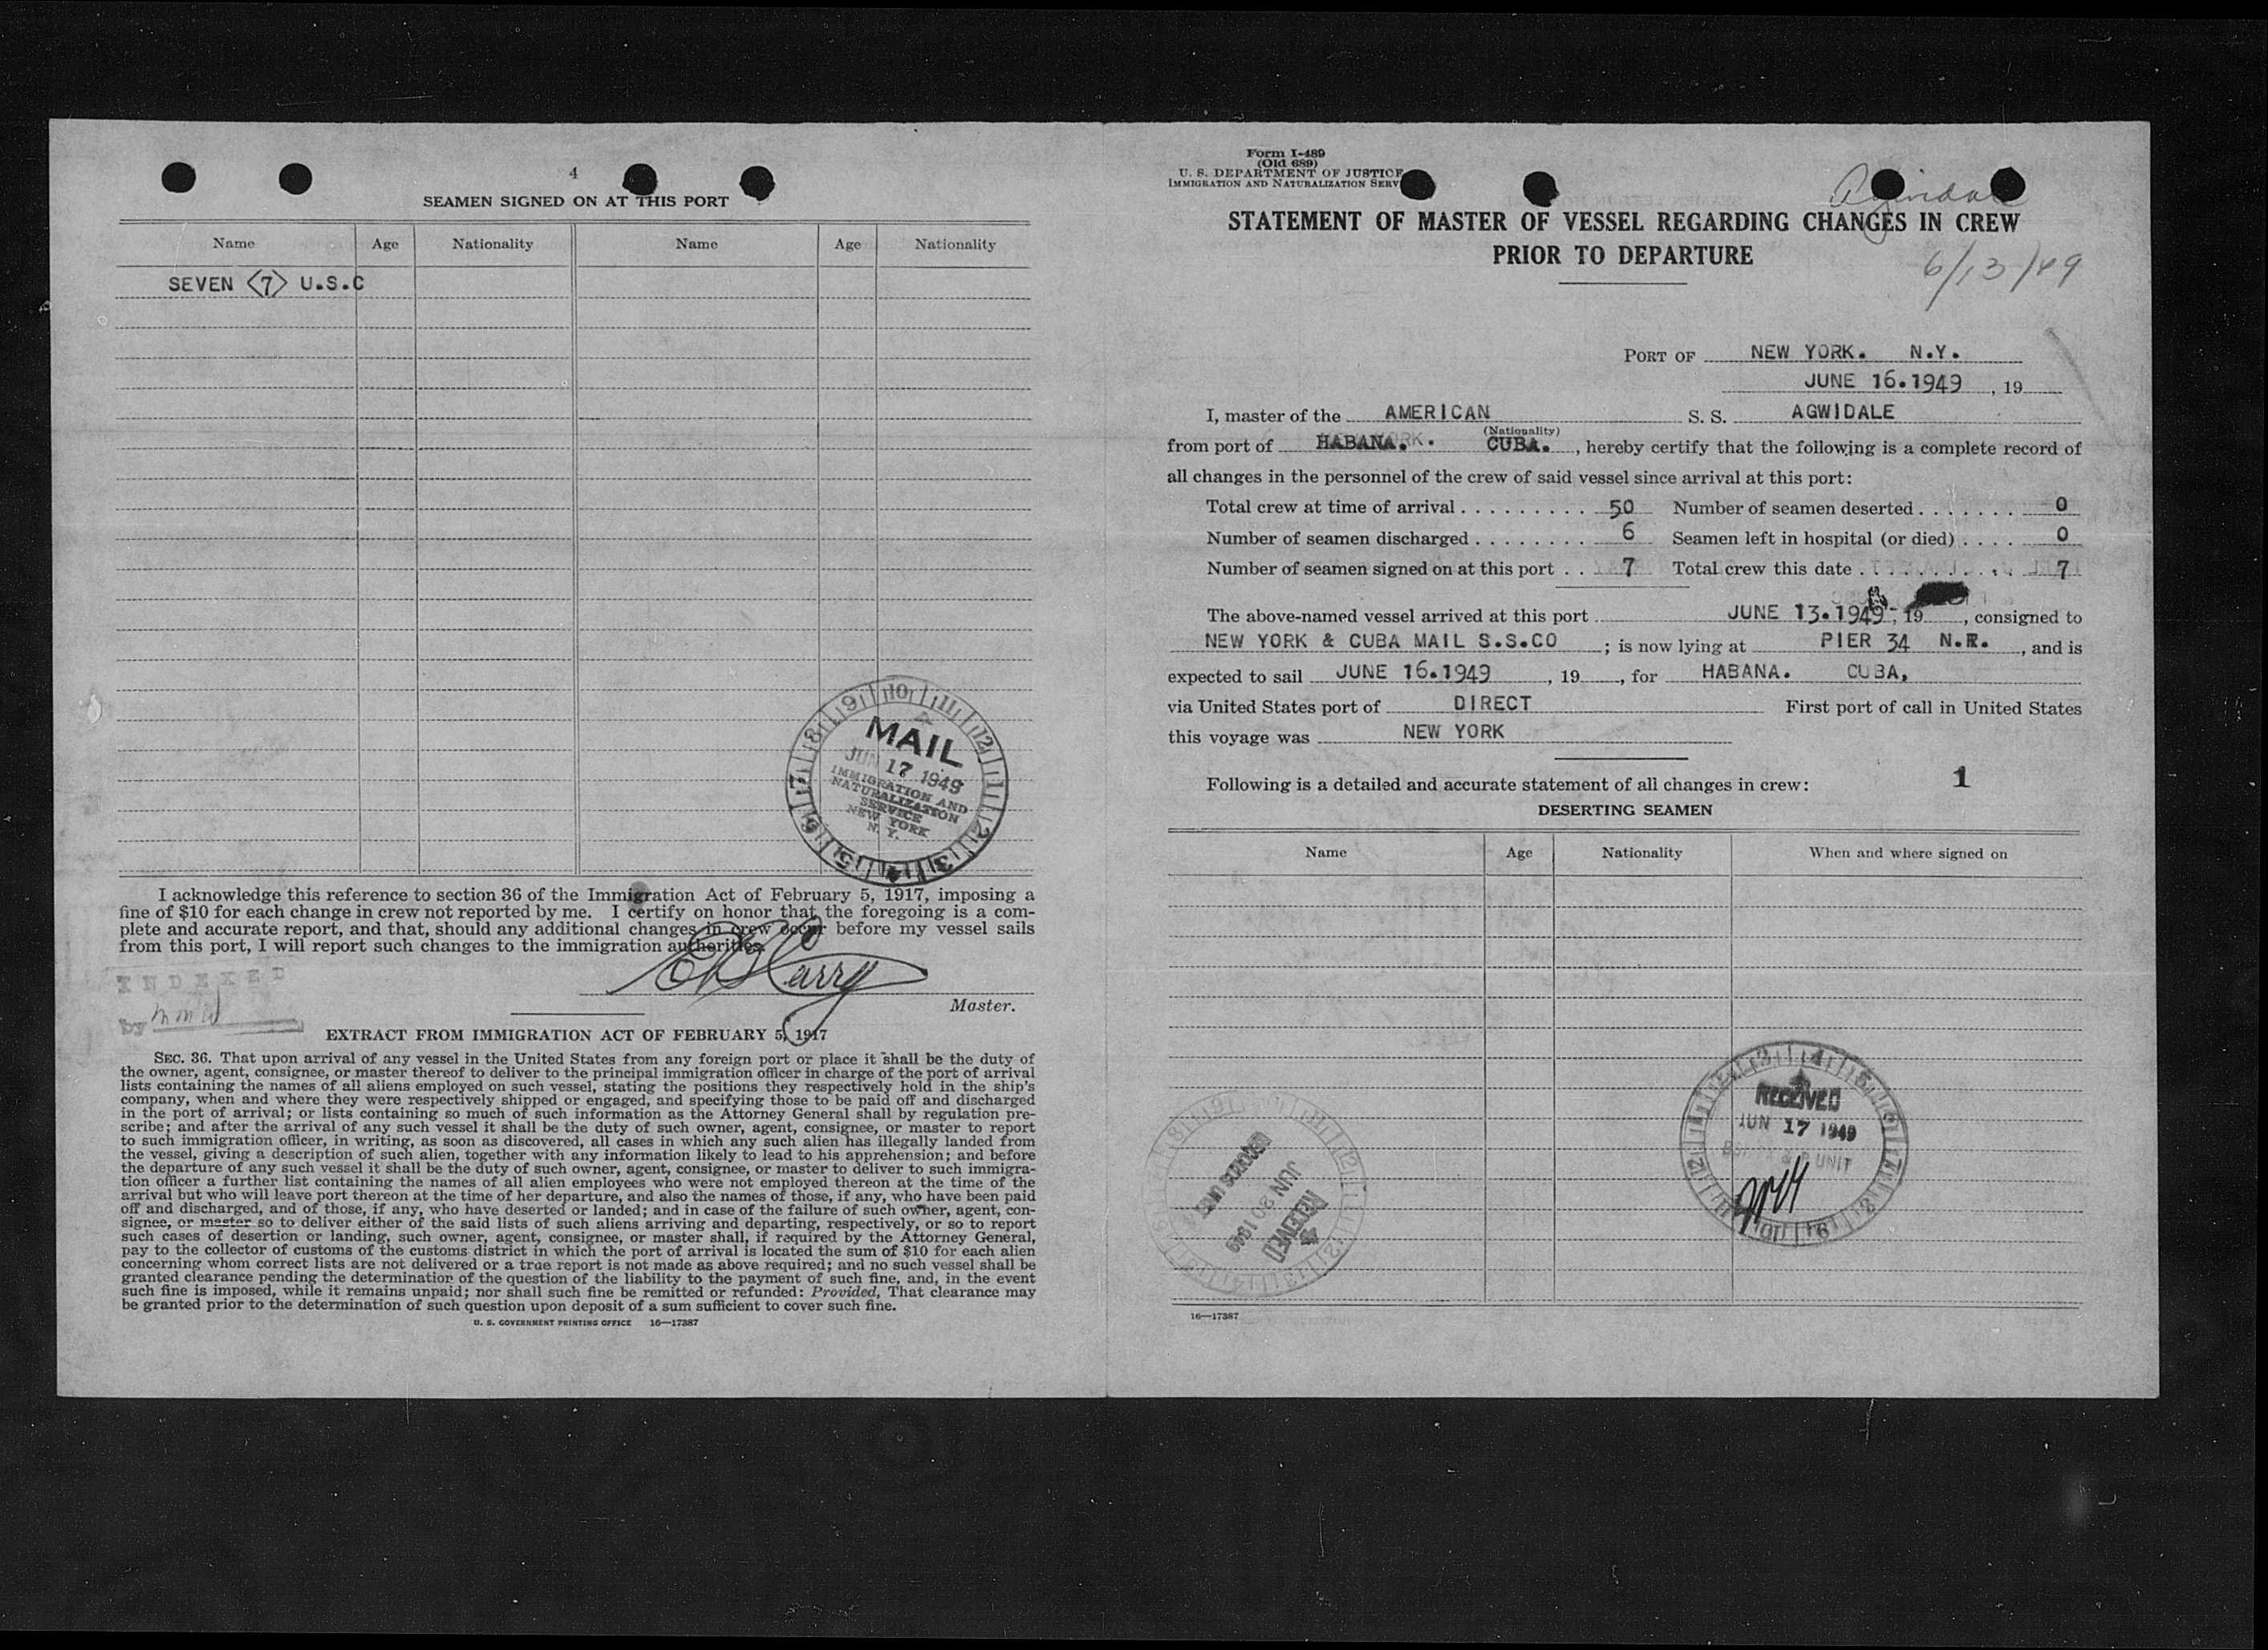 4
SEAMEN SIGNED ON AT THIS PORT
Name Age Nationality Name Age Nationality
SEVEN <7> U.S.C
MAIL
JUN 17 1949
IMMIGRATION AND
NATURALIZATION
SERVICE
NEW YORK
N. Y.
I acknowledge this reference to section 36 of the Immigration Act of February 5, 1917, imposing a
fine of $10 for each change in crew not reported by me. I certify on honor that the foregoing is a com-
plete and accurate report, and that, should any additional changes in crew occur before my vessel sails
from this port, I will report such changes to the immigration authorities.
INDEXED
by
Master.
EXTRACT FROM IMMIGRATION ACT OF FEBRUARY 5, 1917
SEC. 36. That upon arrival of any vessel in the United States from any foreign port or place it shall be the duty of
the owner, agent, consignee, or master thereof to deliver to the principal immigration officer in charge of the port of arrival
lists containing the names of all aliens employed on such vessel, stating the positions they respectively hold in the ship's
company, when and where they were respectively shipped or engaged, and specifying those to be paid off and discharged
in the port of arrival; or lists containing so much of such information as the Attorney General shall by regulation pre-
scribe; and after the arrival of any such vessel it shall be the duty of such owner, agent, consignee, or master to report
to such immigration officer, in writing, as soon as discovered, all cases in which any such alien has illegally landed from
the vessel, giving a description of such alien, together with any information likely to lead to his apprehension; and before
the departure of any such vessel it shall be the duty of such owner, agent, consignee, or master to deliver to such immigra-
tion officer a further list containing the names of all alien employees who were not employed thereon at the time of the
arrival but who will leave port thereon at the time of her departure, and also the names of those, if any, who have been paid
off and discharged, and of those, if any, who have deserted or landed; and in case of the failure of such owner, agent, con-
signee, or master so to deliver either of the said lists of such aliens arriving and departing, respectively, or so to report
such cases of desertion or landing, such owner, agent, consignee, or master shall, if required by the Attorney General,
pay to the collector of customs of the customs district in which the port of arrival is located the sum of $10 for each alien
concerning whom correct lists are not delivered or a true report is not made as above required; and no such vessel shall be
granted clearance pending the determination of the question of the liability to the payment of such fine, and, in the event
such fine is imposed, while it remains unpaid; nor shall such fine be remitted or refunded: Provided, That clearance may
be granted prior to the determination of such question upon deposit of a sum sufficient to cover such fine.
U. S. GOVERNMENT PRINTING OFFICE 16—17387
Form I-489
(Old 689)
U. S. DEPARTMENT OF JUSTICE
IMMIGRATION AND NATURALIZATION SERV
STATEMENT OF MASTER OF VESSEL REGARDING CHANGES IN CREW
PRIOR TO DEPARTURE
6/13/49
PORT OF NEW YORK. N.Y.
JUNE 16.1949, 19
I, master of the AMERICAN S. S. AGWIDALE
(Nationality)
from port of HABANA. CUBA., hereby certify that the following is a complete record of
all changes in the personnel of the crew of said vessel since arrival at this port:
Total crew at time of arrival 50 Number of seamen deserted 0
Number of seamen discharged 6 Seamen left in hospital (or died) 0
Number of seamen signed on at this port 7 Total crew this date 7
The above-named vessel arrived at this port JUNE 13.1949, 19, consigned to
NEW YORK & CUBA MAIL S.S.CO; is now lying at PIER 34 N.R., and is
expected to sail JUNE 16.1949, 19, for HABANA. CUBA,
via United States port of DIRECT First port of call in United States
this voyage was NEW YORK
Following is a detailed and accurate statement of all changes in crew: 1
DESERTING SEAMEN
Name Age Nationality When and where signed on
RECEIVED
JUN 17 1949
UNIT
RECEIVED
JUN 20 1949
16—17387